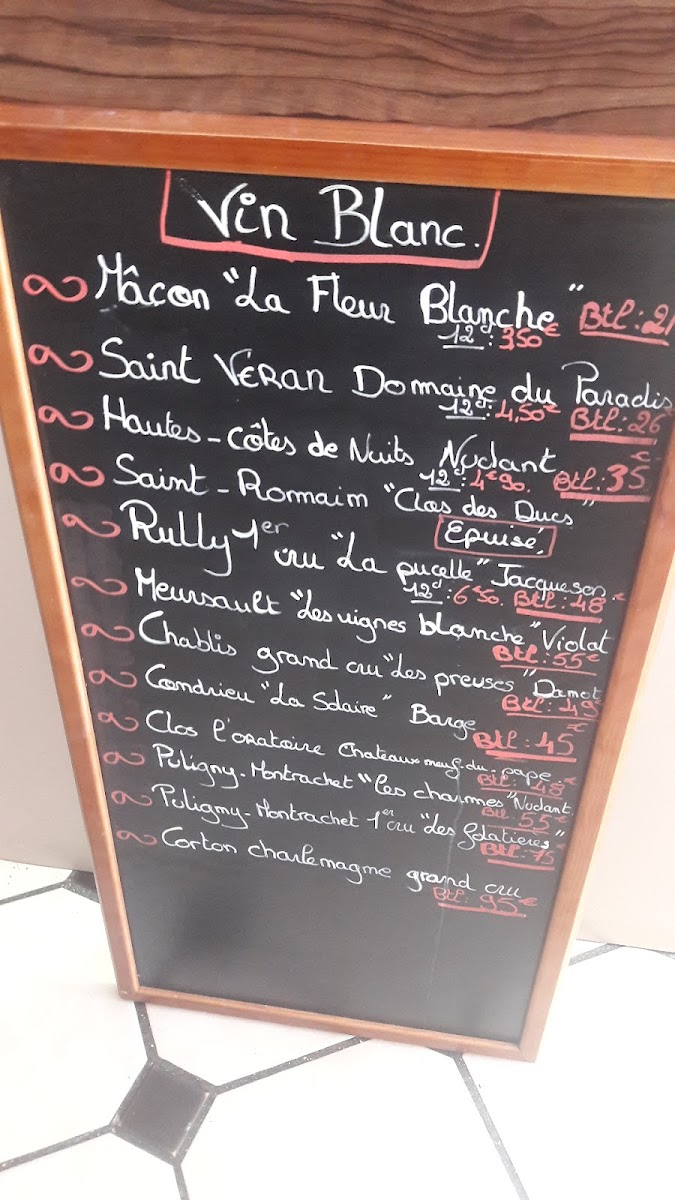 Vin Blanc.
Mâcon "La Fleur Blanche" Btl: 21
12cl: 3,50€
Saint VÉRAN Domaine du Paradis
12cl: 4,50€ Btl: 26€
Hautes-Côtes de Nuits Nudant
12cl: 4€90. Btl: 35€
Saint-Romain "Clos des Ducs"
Epuisé,
Rully 1er cru "La pucelle" Jacqueson.
12cl: 6€50. Btl: 48€
Meursault "Les vignes blanche" Violot
Btl: 55€
Chablis grand cru "Les preuses" Damot
Btl: 49€
Condrieu "La Solaire" Barge
Btl: 45€
Clos l'oratoire Chateauneuf-du-pape
Btl: 48€
Puligny-Montrachet "les charmes" Nudant
Btl: 55€
Puligny-Montrachet 1er cru "les folatieres"
Btl: 75€
Corton charlemagne grand cru
Btl: 95€